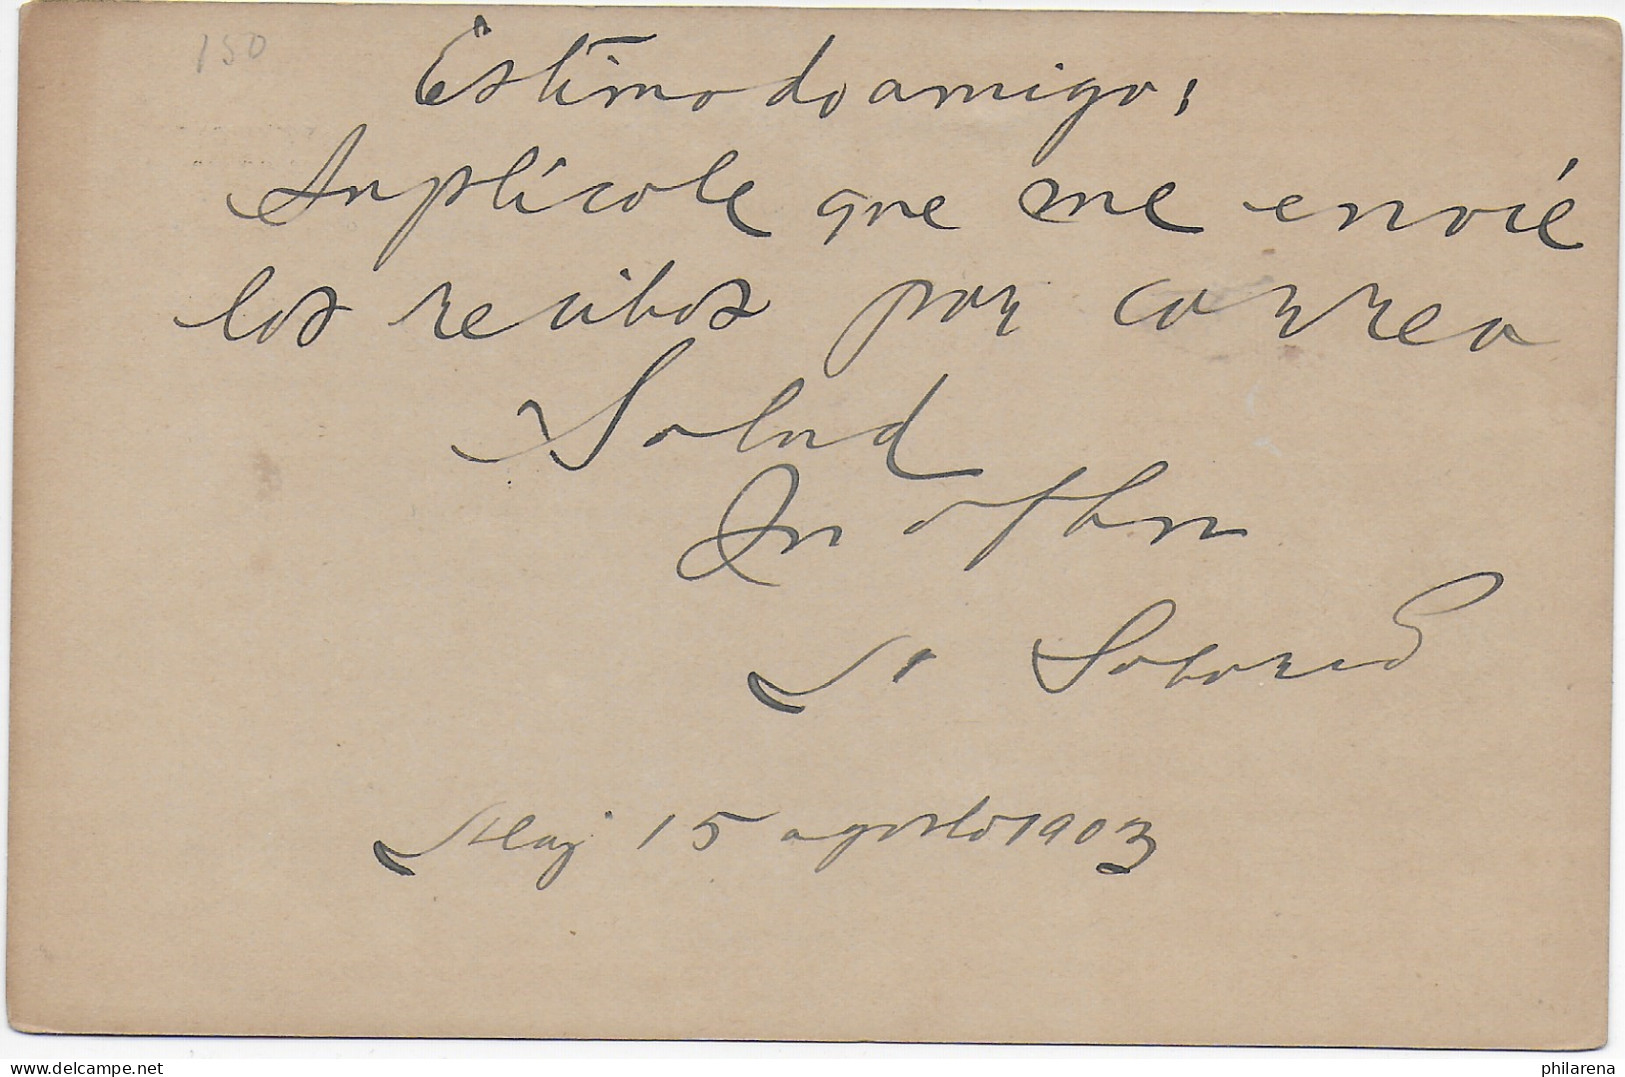 150
Estimado amigo:
Suplícole que me envíe
los recibos por correo
Salud
15 agosto 1903
www.delcampe.net
philarena